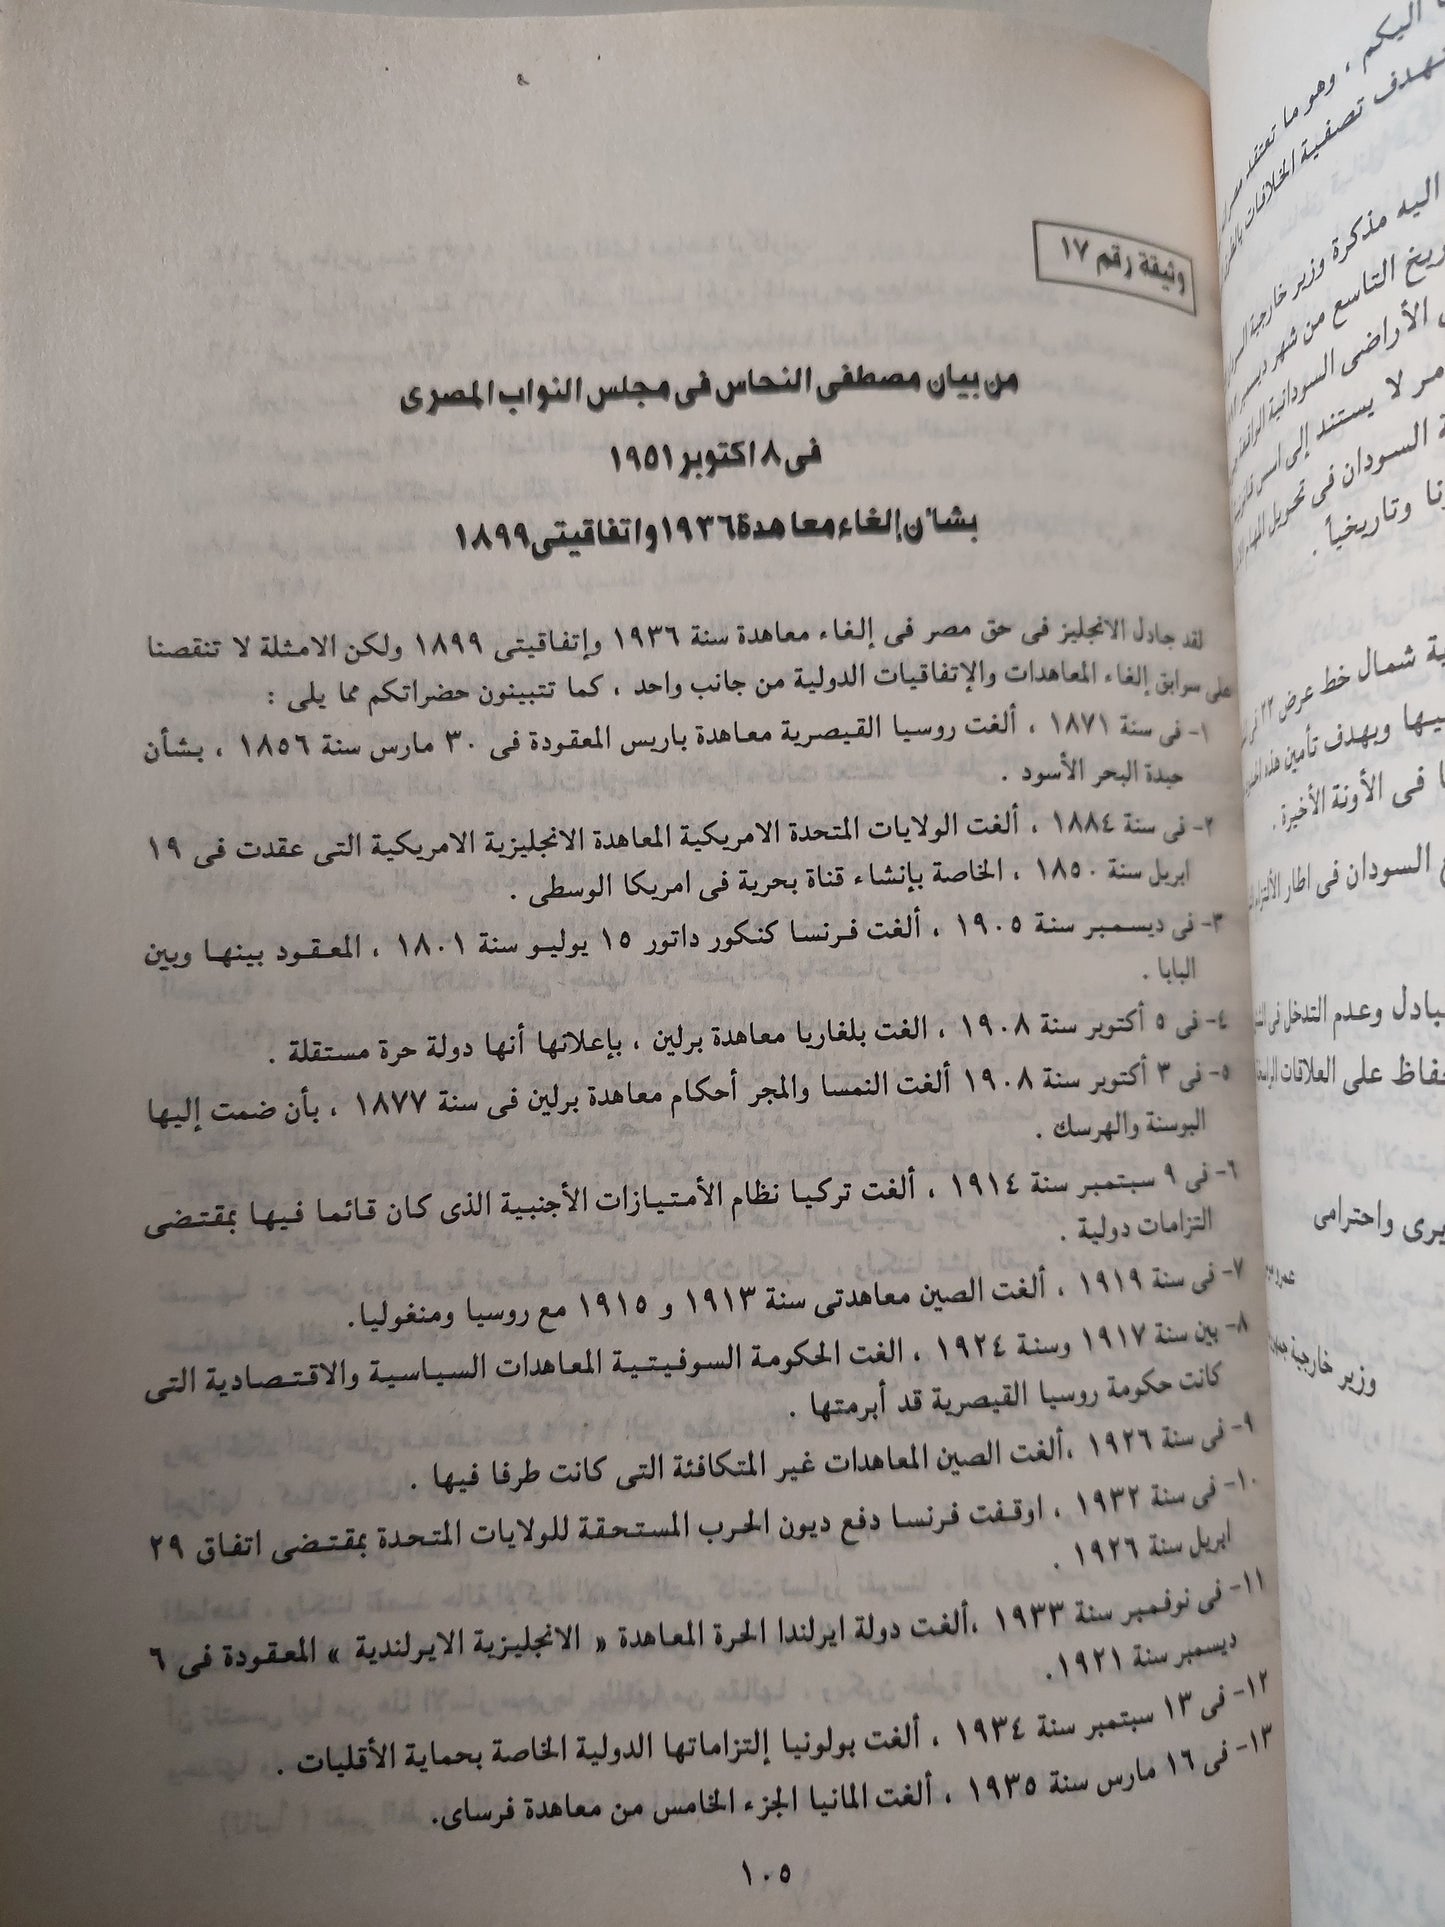 وثيقة رقم ١٧
من بيان مصطفى النحاس فى مجلس النواب المصرى
فى ٨ اكتوبر ١٩٥١
بشأن إلغاء معاهدة ١٩٣٦ واتفاقيتى ١٨٩٩
لقد جادل الانجليز فى حق مصر فى إلغاء معاهدة سنة ١٩٣٦ وإتفاقيتى ١٨٩٩ ولكن الامثلة لا تنقصنا
على سوابق إلغاء المعاهدات والإتفاقيات الدولية من جانب واحد ، كما تتبينون حضراتكم مما يلى :
١- فى سنة ١٨٧١ ، ألغت روسيا القيصرية معاهدة باريس المعقودة فى ٣٠ مارس سنة ١٨٥٦ ، بشأن
حيدة البحر الأسود .
٢- فى سنة ١٨٨٤ ، ألغت الولايات المتحدة الامريكية المعاهدة الانجليزية الامريكية التى عقدت فى ١٩
ابريل سنة ١٨٥٠ ، الخاصة بإنشاء قناة بحرية فى امريكا الوسطى .
٣- فى ديسمبر سنة ١٩٠٥ ، ألغت فرنسا كنكور داتور ١٥ يوليو سنة ١٨٠١ ، المعقود بينها وبين
البابا .
٤- فى ٥ أكتوبر سنة ١٩٠٨ ، الغت بلغاريا معاهدة برلين ، بإعلانها أنها دولة حرة مستقلة .
٥- فى ٣ أكتوبر سنة ١٩٠٨ ألغت النمسا والمجر أحكام معاهدة برلين فى سنة ١٨٧٧ ، بأن ضمت إليها
البوسنة والهرسك .
٦- فى ٩ سبتمبر سنة ١٩١٤ ، ألغت تركيا نظام الأمتيازات الأجنبية الذى كان قائما فيها بمقتضى
التزامات دولية .
٧- فى سنة ١٩١٩ ، ألغت الصين معاهدتى سنة ١٩١٣ و ١٩١٥ مع روسيا ومنغوليا.
٨- بين سنة ١٩١٧ وسنة ١٩٢٤ ، الغت الحكومة السوفيتية المعاهدات السياسية والاقتصادية التى
كانت حكومة روسيا القيصرية قد أبرمتها .
٩- فى سنة ١٩٢٦ ،ألغت الصين المعاهدات غير المتكافئة التى كانت طرفا فيها .
١٠- فى سنة ١٩٣٢ ، اوقفت فرنسا دفع ديون الحرب المستحقة للولايات المتحدة بمقتضى اتفاق ٢٩
ابريل سنة ١٩٢٦ .
١١- فى نوفمبر سنة ١٩٣٣ ،ألغت دولة ايرلندا الحرة المعاهدة « الانجليزية الايرلندية » المعقودة فى ٦
ديسمبر سنة ١٩٢١.
١٢- فى ١٣ سبتمبر سنة ١٩٣٤ ، ألغت بولونيا إلتزاماتها الدولية الخاصة بحماية الأقليات .
١٣- فى ١٦ مارس سنة ١٩٣٥ ، ألغت المانيا الجزء الخامس من معاهدة فرساى.
١٠٥
اليكم ، وهو ما تعتقد
تصفية الخلافات
اليه مذكرة وزير خارجية
التاسع من شهر ديسمبر
الأراضى السودانية
لا يستند إلى اسس
السودان فى تحويل
وتاريخياً .
شمال خط عرض ٢٢
وبهدف تأمين هذه
فى الأونة الأخيرة .
السودان فى اطار
وعدم التدخل فى
على العلاقات
واحترامى
وزير خارجية